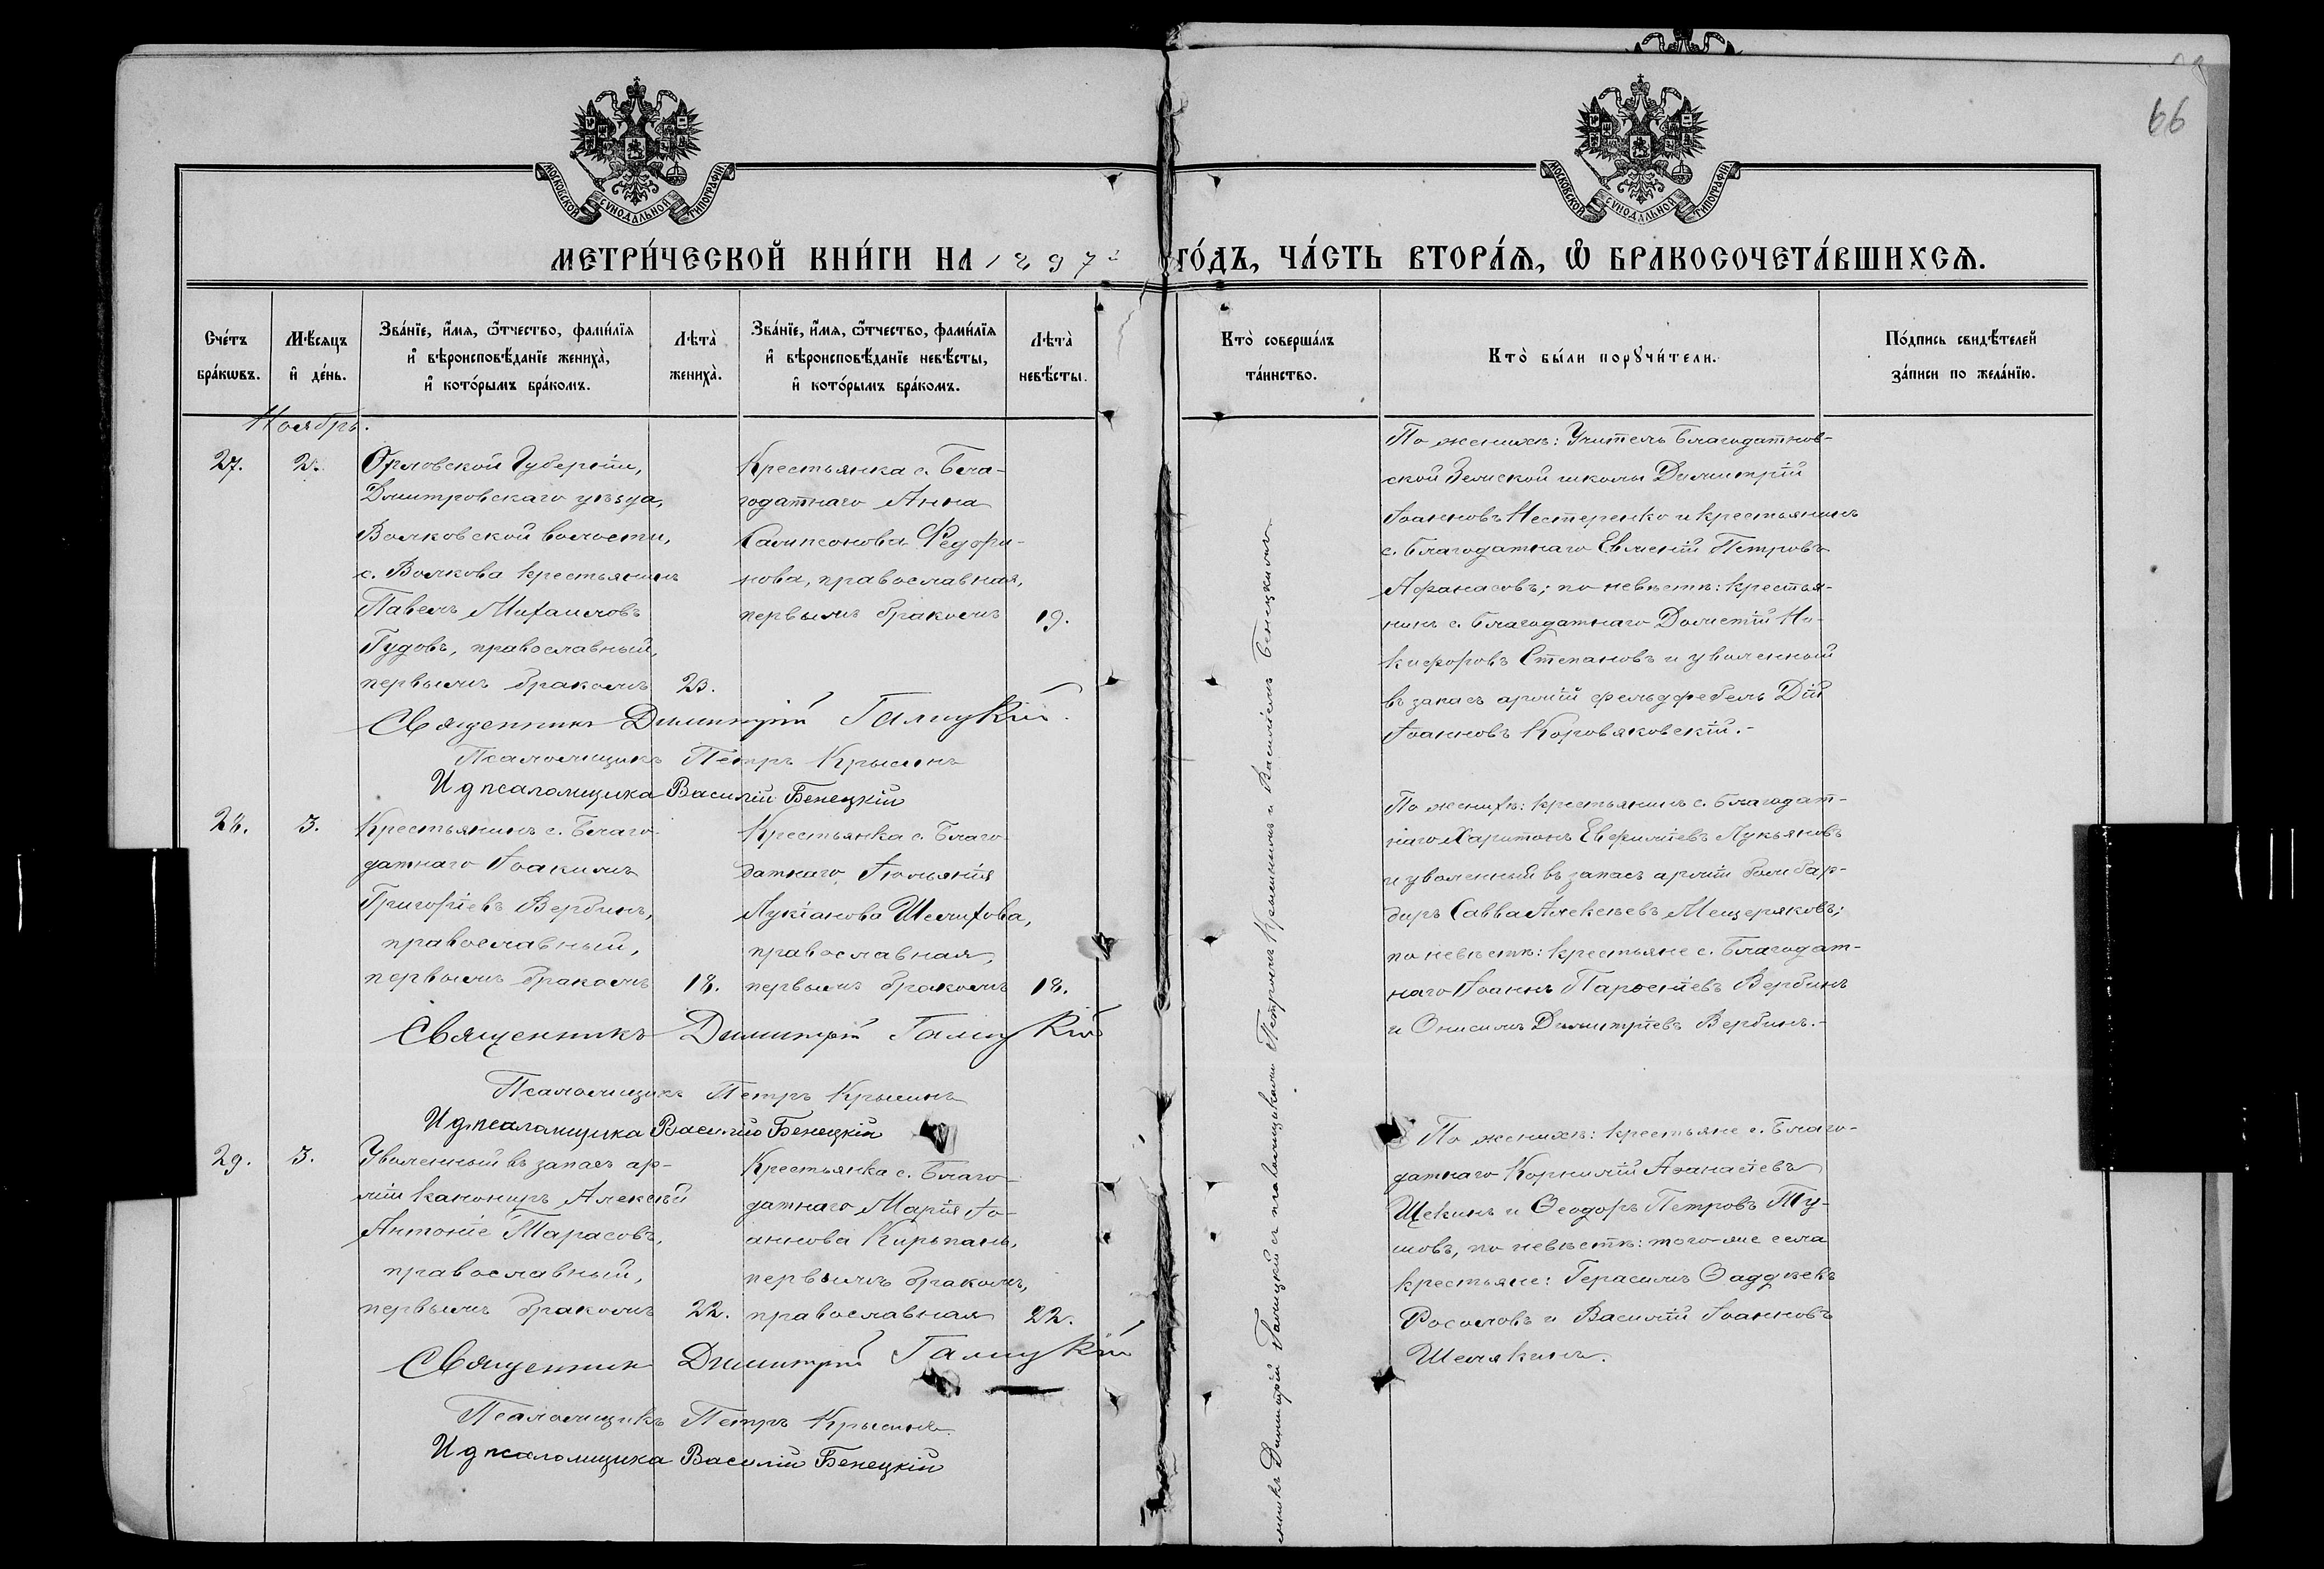 66
МОСКОВСКОЙ СѴНОДАЛЬНОЙ ТИПОГРАФІИ.
МОСКОВСКОЙ СѴНОДАЛЬНОЙ ТИПОГРАФІИ.
МЕТРИ́ЧЕСКОЙ КНИ́ГИ НА 1897 ГО́ДЪ, ЧА́СТЬ ВТОРА́Ѧ, Ѽ БРАКОСОЧЕТА́ВШИХСѦ.
Сче́тъ бра́кѡвъ.
Мѣ́сяцъ и҆ де́нь.
Зва́нїе, и҆́мя, ѻ҆́тчество, фами́лїя
и҆ вѣроисповѣ́данїе жениха̀,
и҆ кото́рымъ бра́комъ.
Лѣта̀ жениха̀.
Зва́нїе, и҆́мя, ѻ҆́тчество, фами́лїя
и҆ вѣроисповѣ́данїе невѣ́сты,
и҆ кото́рымъ бра́комъ.
Лѣта̀ невѣ́сты.
Кто̀ соверша́лъ та́инство.
Кто̀ бы́ли порꙋчи́тели.
По́дпись свидѣ́телей за́писи по жела́нїю.
Ноябрь.
27.
2.
Орловской Губерніи,
Дмитровскаго уѣзда,
Волковской волости,
с. Волкова крестьянинъ
Павелъ Михаиловъ
Гудовъ, православный,
первымъ бракомъ
23.
Крестьянка с. Бла-
годатнаго Анна
Сампсонова Федори-
нова, православная,
первымъ бракомъ
19.
По женихѣ: Учитель Благодатнов-
ской Земской школы Димитрій
Іоанновъ Нестеренко и крестьянинъ
с. Благодатнаго Евменій Петровъ
Афанасовъ; по невѣстѣ: крестья-
нинъ с. Благодатнаго Дометій Ни-
кифоровъ Степановъ и уволенный
въ запасъ арміи фельдфебель Дій
Іоанновъ Коровяковскій.-
Священникъ Димитрій Галицкій.
Псаломщикъ Петръ Крысинъ
И д псаломщика Василій Бенецкій
28.
3.
Крестьянинъ с. Благо-
датнаго Іоакимъ
Григоріевъ Вербинъ,
православный,
первымъ бракомъ
18.
Крестьянка с. Благо-
датнаго Іюльянія
Лукіанова Шемихова,
православная,
первымъ бракомъ
18.
По женихѣ: крестьянинъ с. Благодат-
наго Харитонъ Евфиміевъ Лукьяновъ
и уволенный въ запасъ арміи бомбар-
диръ Савва Алексѣевъ Мещеряковъ;
по невѣстѣ: крестьяне с. Благодат-
наго Іоаннъ Парѳеніевъ Вербинъ
и Онисимъ Димитріевъ Вербинъ.-
Священникъ Димитрій Галицкій
Псаломщикъ Петръ Крысинъ
И д псаломщика Василій Бенецкій
29.
3.
Уволенный въ запасъ ар-
міи канониръ Алексѣй
Антоніе Тарасовъ,
православный,
первымъ бракомъ
22.
Крестьянка с. Благо-
датнаго Марія Іо-
аннова Кирьпань,
первымъ бракомъ,
православная
22.
По женихѣ: крестьяне с. Благо-
датнаго Корнилій Аѳанасіевъ
Щекинъ и Ѳеодоръ Петровъ Ту-
шовъ, по невѣстѣ: того-же села
крестьяне: Герасимъ Ѳаддеевъ
Росоловъ и Василій Іоанновъ
Шелякинъ.
Священник Димитрій Галицкій
Псаломщикъ Петръ Крысинъ.
И д псаломщика Василій Бенецкій
Димитрій Галицкій съ псаломщиками Петромъ Крысинымъ и Василіемъ Бенецкимъ